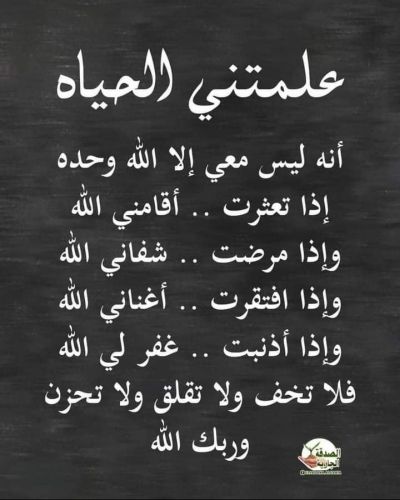 علمتني الحياه
أنه ليس معي إلا الله وحده
إذا تعثرت .. أقامني الله
وإذا مرضت .. شفاني الله
وإذا افتقرت .. أغناني الله
وإذا أذنبت .. غفر لي الله
فلا تخف ولا تقلق ولا تحزن
وربك الله
الصدقة
الجارية